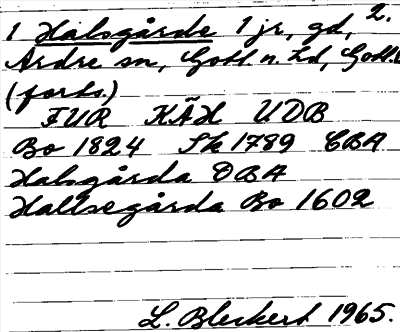 2.
1 Halsgårde 1 jr, gd,
Ardre sn, Gotl n. hd, Gotl.
(forts.)
FUR KÄX UDB
Bo 1824 Sk 1789 CBA
Halsgårda DBA
Hallsegårda Bo 1602
L. Bleckert 1965.